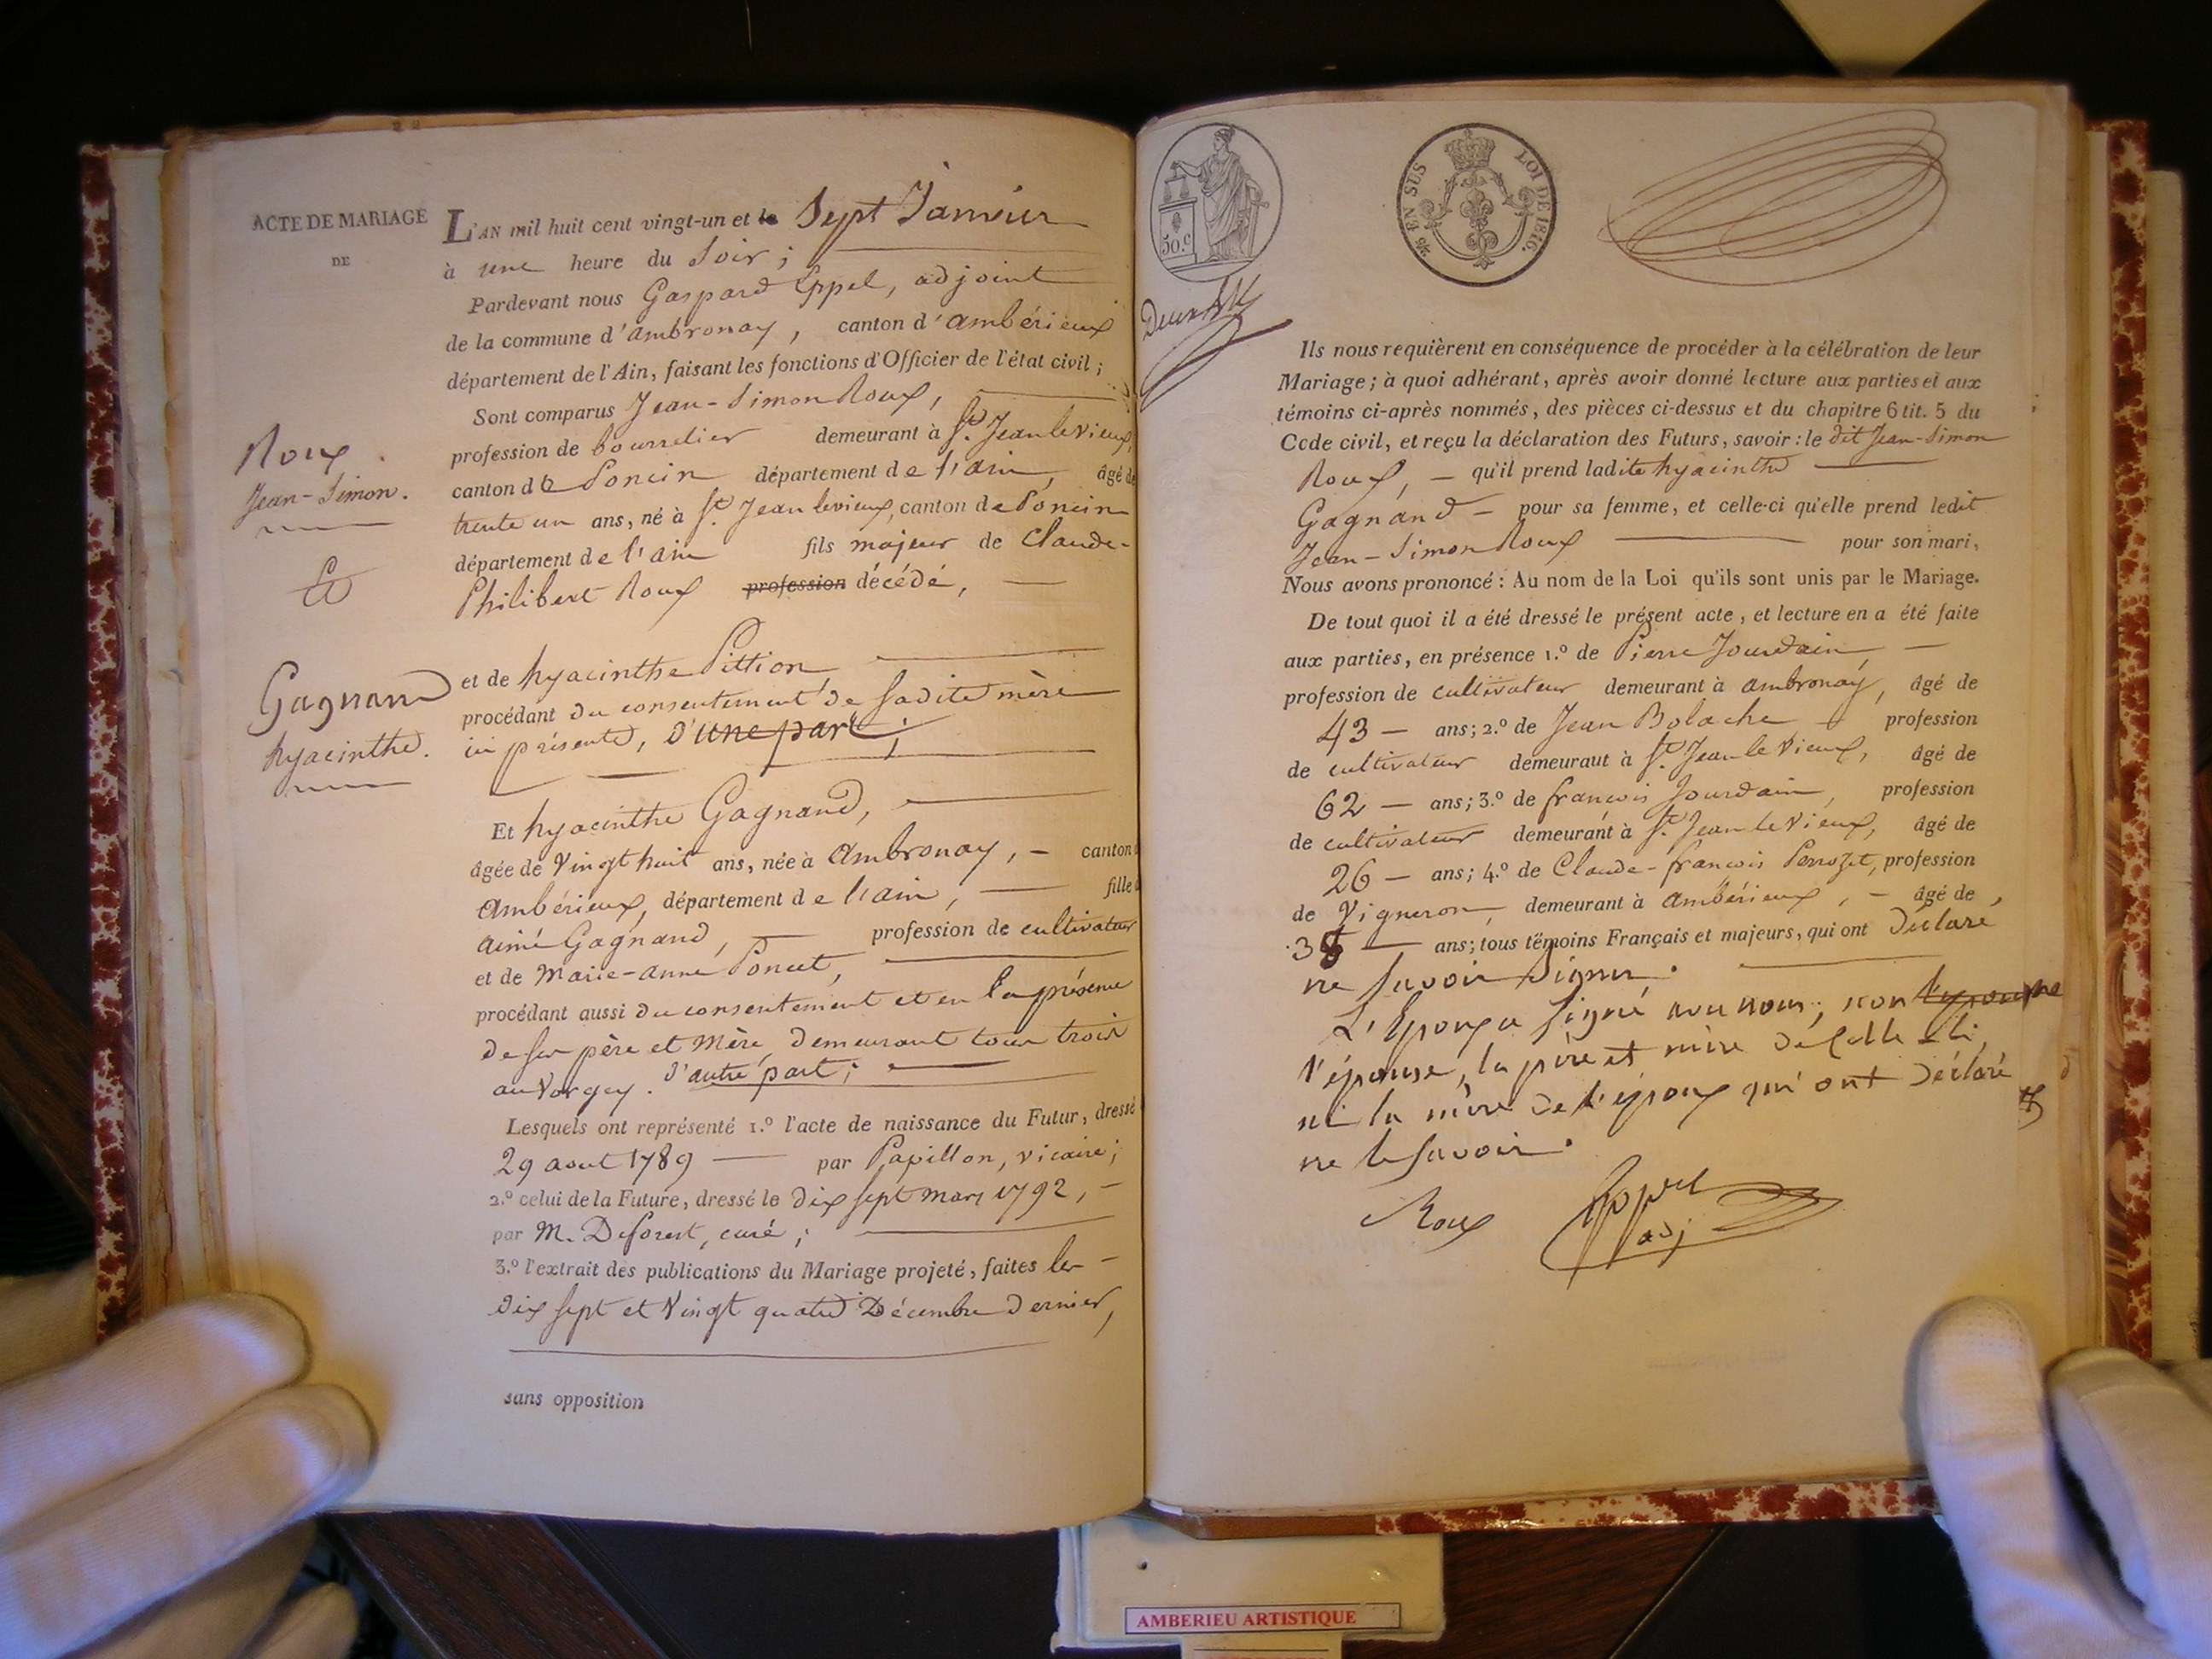 ACTE DE MARIAGE
DE
Roux
Jean-Simon.
Et
Gagnand
hyacinthe.
L'AN mil huit cent vingt-un et le Sept Janvier
à une heure du Soir ;
Pardevant nous Gaspard Eppel, adjoint
de la commune d'ambronay, canton d'ambérieux
département de l'Ain, faisant les fonctions d'Officier de l'état civil ;
Sont comparus Jean-Simon Roux,
profession de bourrelier demeurant à St. Jean le vieux,
canton de Poncin département de l'ain, âgé de
trente un ans, né à St. Jean levieux, canton de Poncin
département de l'ain fils majeur de Claude-
Philibert Roux profession décédé,
et de hyacinthe Pittion,
procédant du consentement de sadite mère
ici présente, d'une part ;
Et hyacinthe Gagnand,
âgée de Vingt huit ans, née à Ambronay, canton
Ambérieux, département de l'ain, fille
aimé Gagnand, profession de cultivateur
et de Marie-anne Poncet,
procédant aussi du consentement et en la présence
de ses père et mère, demeurant tous trois
au Vorgey. d'autre part ;
Lesquels ont représenté 1.º l'acte de naissance du Futur, dressé
29 aout 1789 par Papillon, vicaire ;
2.º celui de la Future, dressé le dix sept mars 1792,
par M. Deforest, curé ;
3.º l'extrait des publications du Mariage projeté, faites les
dix sept et Vingt quatre Décembre dernier,
sans opposition
50.c
2/5 EN SUS LOI DE 1816.
Ils nous requièrent en conséquence de procéder à la célébration de leur
Mariage ; à quoi adhérant, après avoir donné lecture aux parties et aux
témoins ci-après nommés, des pièces ci-dessus et du chapitre 6 tit. 5 du
Code civil, et reçu la déclaration des Futurs, savoir : le dit Jean-Simon
Roux, qu'il prend ladite hyacinthe
Gagnand pour sa femme, et celle-ci qu'elle prend ledit
Jean-Simon Roux pour son mari,
Nous avons prononcé : Au nom de la Loi qu'ils sont unis par le Mariage.
De tout quoi il a été dressé le présent acte, et lecture en a été faite
aux parties, en présence 1.º de Pierre Jourdain,
profession de cultivateur demeurant à ambronay, âgé de
43 ans ; 2.º de Jean Bolache profession
de cultivateur demeurant à St. Jean le Vieux, âgé de
62 ans ; 3.º de françois Jourdain, profession
de cultivateur demeurant à St. Jean le Vieux, âgé de
26 ans ; 4.º de Claude-françois Perrozet, profession
de Vigneron, demeurant à ambérieux, âgé de
38 ans ; tous témoins Français et majeurs, qui ont déclaré
ne savoir signer.
L'Epoux a signé avec nous ; non l'epouse
l'épouse, les père et mère de celle ci,
ni la mère de l'époux qui ont déclaré
ne le savoir.
Roux Eppel
adj
AMBERIEU ARTISTIQUE